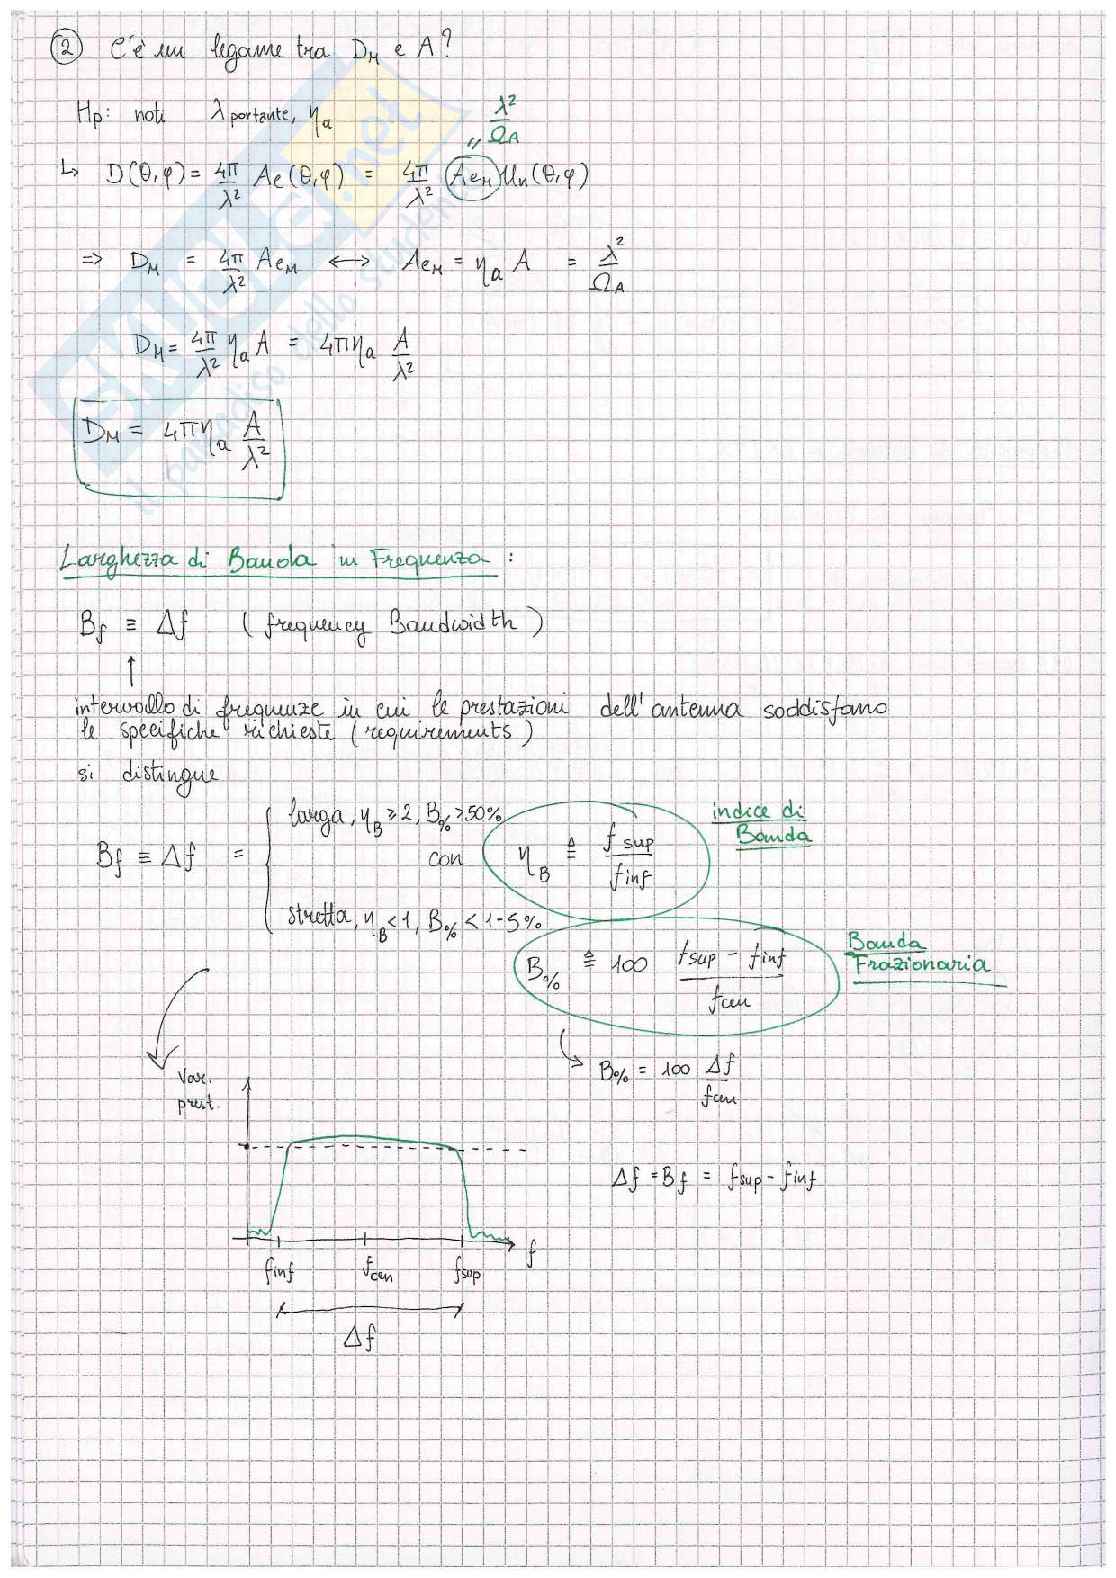 ② C'è un legame tra D_M e A?
Hp: noti λ portante, η_a
λ²/Ω_A
"
↳ D(θ,φ) = 4π/λ² Ae(θ,φ) = 4π/λ² (Ae_M) U_n(θ,φ)
=> D_M = 4π/λ² Ae_M ↔ Ae_M = η_a A = λ²/Ω_A
D_M = 4π/λ² η_a A = 4πη_a A/λ²
D_M = 4πη_a A/λ²
Larghezza di Banda in Frequenza :
B_f ≡ Δf ( frequency Bandwidth )
↑
intervallo di frequenze in cui le prestazioni dell'antenna soddisfano
le specifiche richieste (requirements)
si distingue
larga, η_B ≥ 2, B_% > 50%
indice di
Banda
B_f ≡ Δf = { con η_B ≜ f_sup/f_inf
stretta, η_B < 1, B_% < 1-5%
Banda
Frazionaria
B_% ≜ 100 (f_sup - f_inf)/f_cen
↳ B_% = 100 Δf/f_cen
Var.
prest.
Δf = B_f = f_sup - f_inf
f
f_inf f_cen f_sup
Δf
EMULE.net
il paradiso dello studente